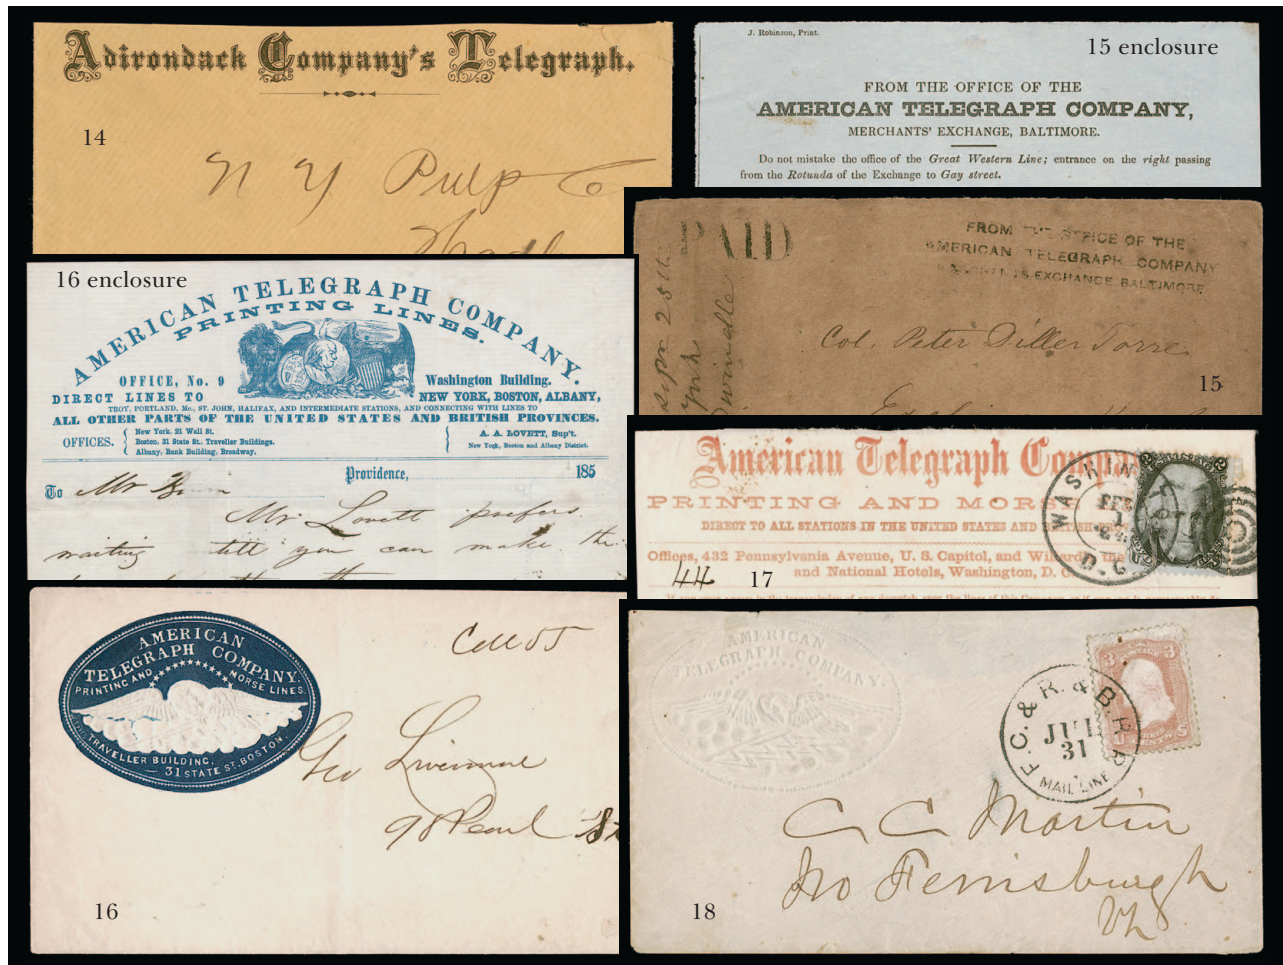 Adirondack Company's Telegraph.
14
N Y Pulp Co
J. Robinson, Print.
15 enclosure
FROM THE OFFICE OF THE
AMERICAN TELEGRAPH COMPANY,
MERCHANTS' EXCHANGE, BALTIMORE.
Do not mistake the office of the Great Western Line; entrance on the right passing
from the Rotunda of the Exchange to Gay street.
PAID
FROM THE OFFICE OF THE
AMERICAN TELEGRAPH COMPANY
EXCHANGE BALTIMORE
Col. Peter Diller Torre
15
16 enclosure
AMERICAN TELEGRAPH COMPANY.
PRINTING LINES.
OFFICE, No. 9
Washington Building.
DIRECT LINES TO
NEW YORK, BOSTON, ALBANY,
TROY, PORTLAND, Me., ST. JOHN, HALIFAX, AND INTERMEDIATE STATIONS, AND CONNECTING WITH LINES TO
ALL OTHER PARTS OF THE UNITED STATES AND BRITISH PROVINCES.
OFFICES.
New York. 21 Wall St.
Boston. 31 State St. Traveller Buildings.
Albany. Bank Building, Broadway.
A. A. LOVETT, Sup't.
New York, Boston and Albany District.
Providence, 185
To Mr
Mr. Lovett prefers
waiting till you can make the
American Telegraph Comp
PRINTING AND MORS
DIRECT TO ALL STATIONS IN THE UNITED STATES AND
Offices, 432 Pennsylvania Avenue, U. S. Capitol, and
and National Hotels, Washington, D. C.
WASHIN
FEB
1
D. C.
44
17
AMERICAN
TELEGRAPH COMPANY.
PRINTING AND MORSE LINES.
TRAVELLER BUILDING,
31 STATE ST. BOSTON.
Geo Livermore
98 Pearl St
16
AMERICAN
TELEGRAPH COMPANY.
3 3
F. C. & R. & B. R R
JUL
31
MAIL LINE
C C Martin
No Ferrisburgh
Vt
18